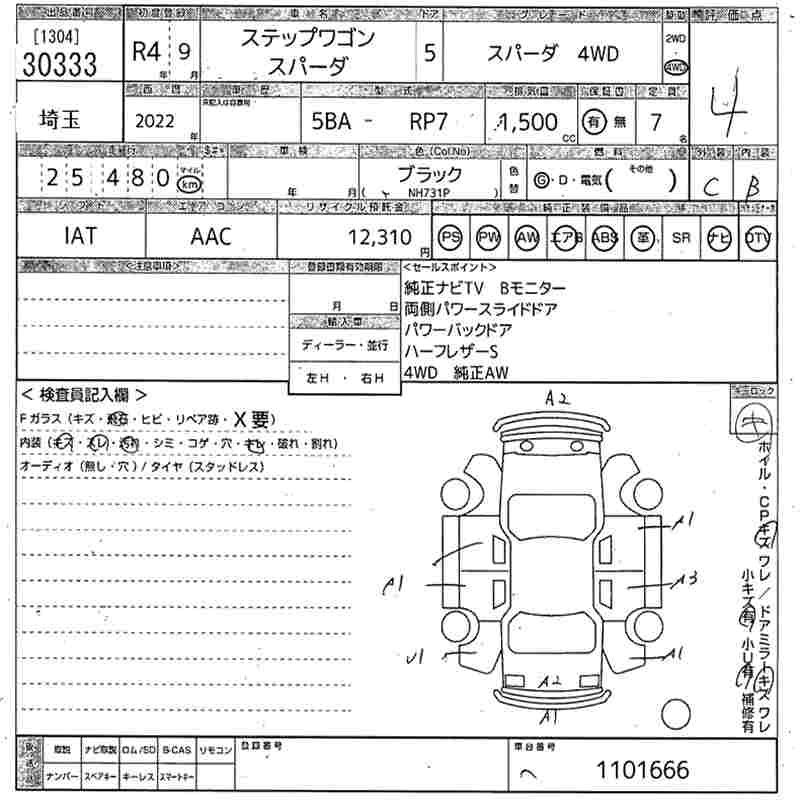 出品番号 初度登録 車名 ドア グレード 駆動 評価点
[1304]
30333
R4年 9月
ステップワゴン
スパーダ
5
スパーダ 4WD
2WD
・
4WD
4
埼玉
2022年
型式 排気量 保証書 定員
5BA - RP7
1,500cc
有 無
7名
走行 車検 色(Col No) 燃料 外装 内装
25480 マイル km
年 月
ブラック
( NH731P )
色替
G・D・電気( その他 )
C B
シフト エアコン リサイクル預託金 純正装備品
IAT AAC 12,310円
PS PW AW エアB ABS 革 SR ナビ DTV
<注意事項> 登録書類有効期限 <セールスポイント>
月 日
輸入車
ディーラー・並行
左H ・ 右H
純正ナビTV Bモニター
両側パワースライドドア
パワーバックドア
ハーフレザーS
4WD 純正AW
< 検査員記入欄 >
Fガラス (キズ・飛石・ヒビ・リペア跡・X要)
内装 (キズ・スレ・汚れ・シミ・コゲ・穴・キレ・破れ・割れ)
オーディオ (無し・穴) / タイヤ (スタッドレス)
A2
A1
A1 A3
A1
A2
A1
キーロック
キ
ホイル・CPキズ ワレ/ドアミラーキズ ワレ
小キズ有 小U有 補修有
取説 ナビ取説 ロム/SD B-CAS リモコン
ナンバー スペアキー キーレス スマートキー
登録番号
車台番号
1101666